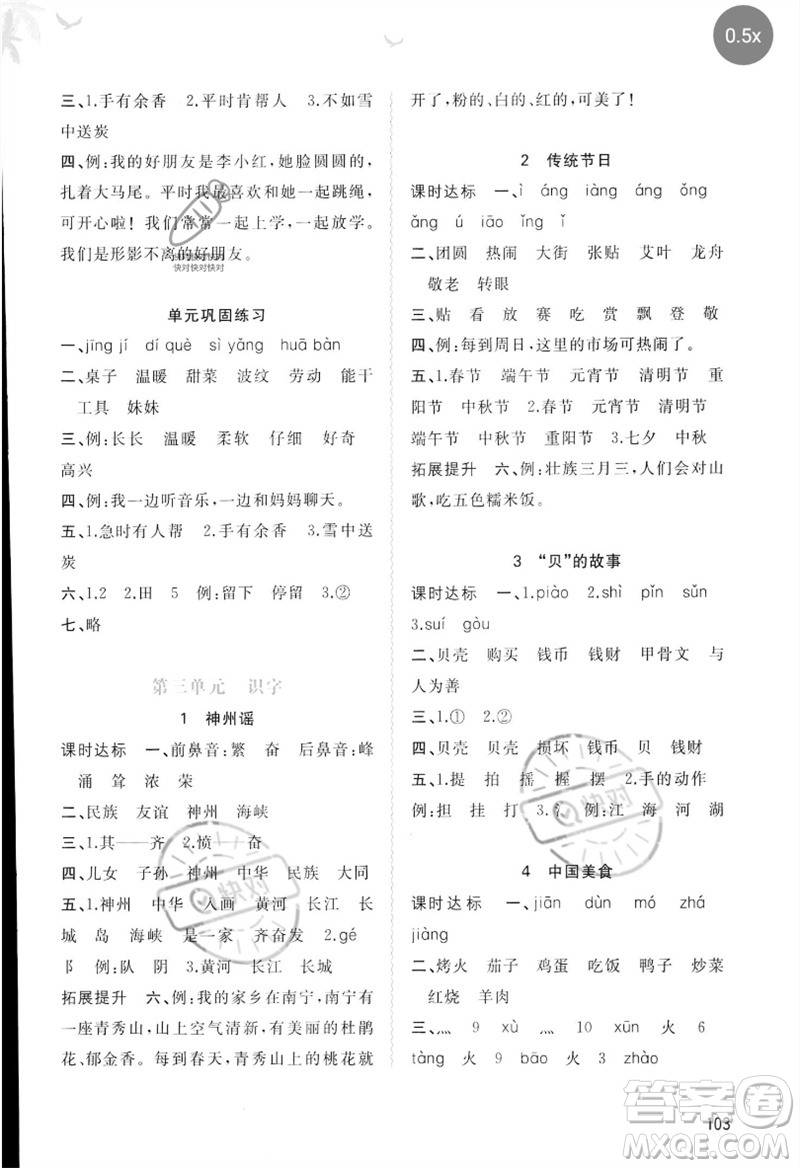 0.5x
三、1.手有余香 2.平时肯帮人 3.不如雪
中送炭
四、例:我的好朋友是李小红,她脸圆圆的,
扎着大马尾。平时我最喜欢和她一起跳绳,
可开心啦!我们常常一起上学,一起放学。
我们是形影不离的好朋友。
快对快对快对
快对快对快对
单元巩固练习
一、jīng jí dí què sì yǎng huā bàn
二、桌子 温暖 甜菜 波纹 劳动 能干
工具 妹妹
三、例:长长 温暖 柔软 仔细 好奇
高兴
四、例:我一边听音乐,一边和妈妈聊天。
五、1.急时有人帮 2.手有余香 3.雪中送
炭
六、1.2 2.田 5 例:留下 停留 3.②
七、略
第三单元 识字
1 神州谣
课时达标 一、前鼻音:繁 奋 后鼻音:峰
涌 耸 浓 荣
二、民族 友谊 神州 海峡
三、1.其——齐 2.愤——奋
四、儿女 子孙 神州 中华 民族 大同
五、1.神州 中华 入画 黄河 长江 长
城 岛 海峡 是一家 齐奋发 2.gé
阝 例:队 阴 3.黄河 长江 长城
拓展提升 六、例:我的家乡在南宁,南宁有
一座青秀山,山上空气清新,有美丽的杜鹃
花、郁金香。每到春天,青秀山上的桃花就
开了,粉的、白的、红的,可美了!
2 传统节日
课时达标 一、ì áng iàng áng ǒng
ǎng ú iāo īng ǐ
二、团圆 热闹 大街 张贴 艾叶 龙舟
敬老 转眼
三、贴 看 放 赛 吃 赏 飘 登 敬
四、例:每到周日,这里的市场可热闹了。
五、1.春节 端午节 元宵节 清明节 重
阳节 中秋节 2.春节 元宵节 清明节
端午节 中秋节 重阳节 3.七夕 中秋
拓展提升 六、例:壮族三月三,人们会对山
歌,吃五色糯米饭。
3 “贝”的故事
课时达标 一、1.piào 2.shì pǐn sǔn
3.suí gòu
二、贝壳 购买 钱币 钱财 甲骨文 与
人为善
三、1.① 2.②
四、贝壳 贝壳 损坏 钱币 贝 钱财
五、1.提 拍 摇 握 摆 2.手的动作
例:担 挂 打 3.氵 例:江 海 河 湖
4 中国美食
课时达标 一、jiān dùn mó zhá
jiàng
二、烤火 茄子 鸡蛋 吃饭 鸭子 炒菜
红烧 羊肉
三、灬 9 xù 灬 10 xūn 火 6
tàng 火 9 bāo 火 5 zhá
快对
快对
答案圈
MXQE.COM
103